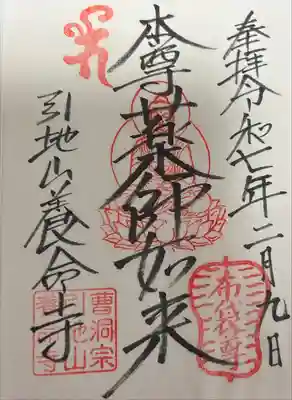 奉拝令和七年二月九日
本尊薬師如来
引地山養命寺
布袋尊
曹洞宗
引地山
養命寺